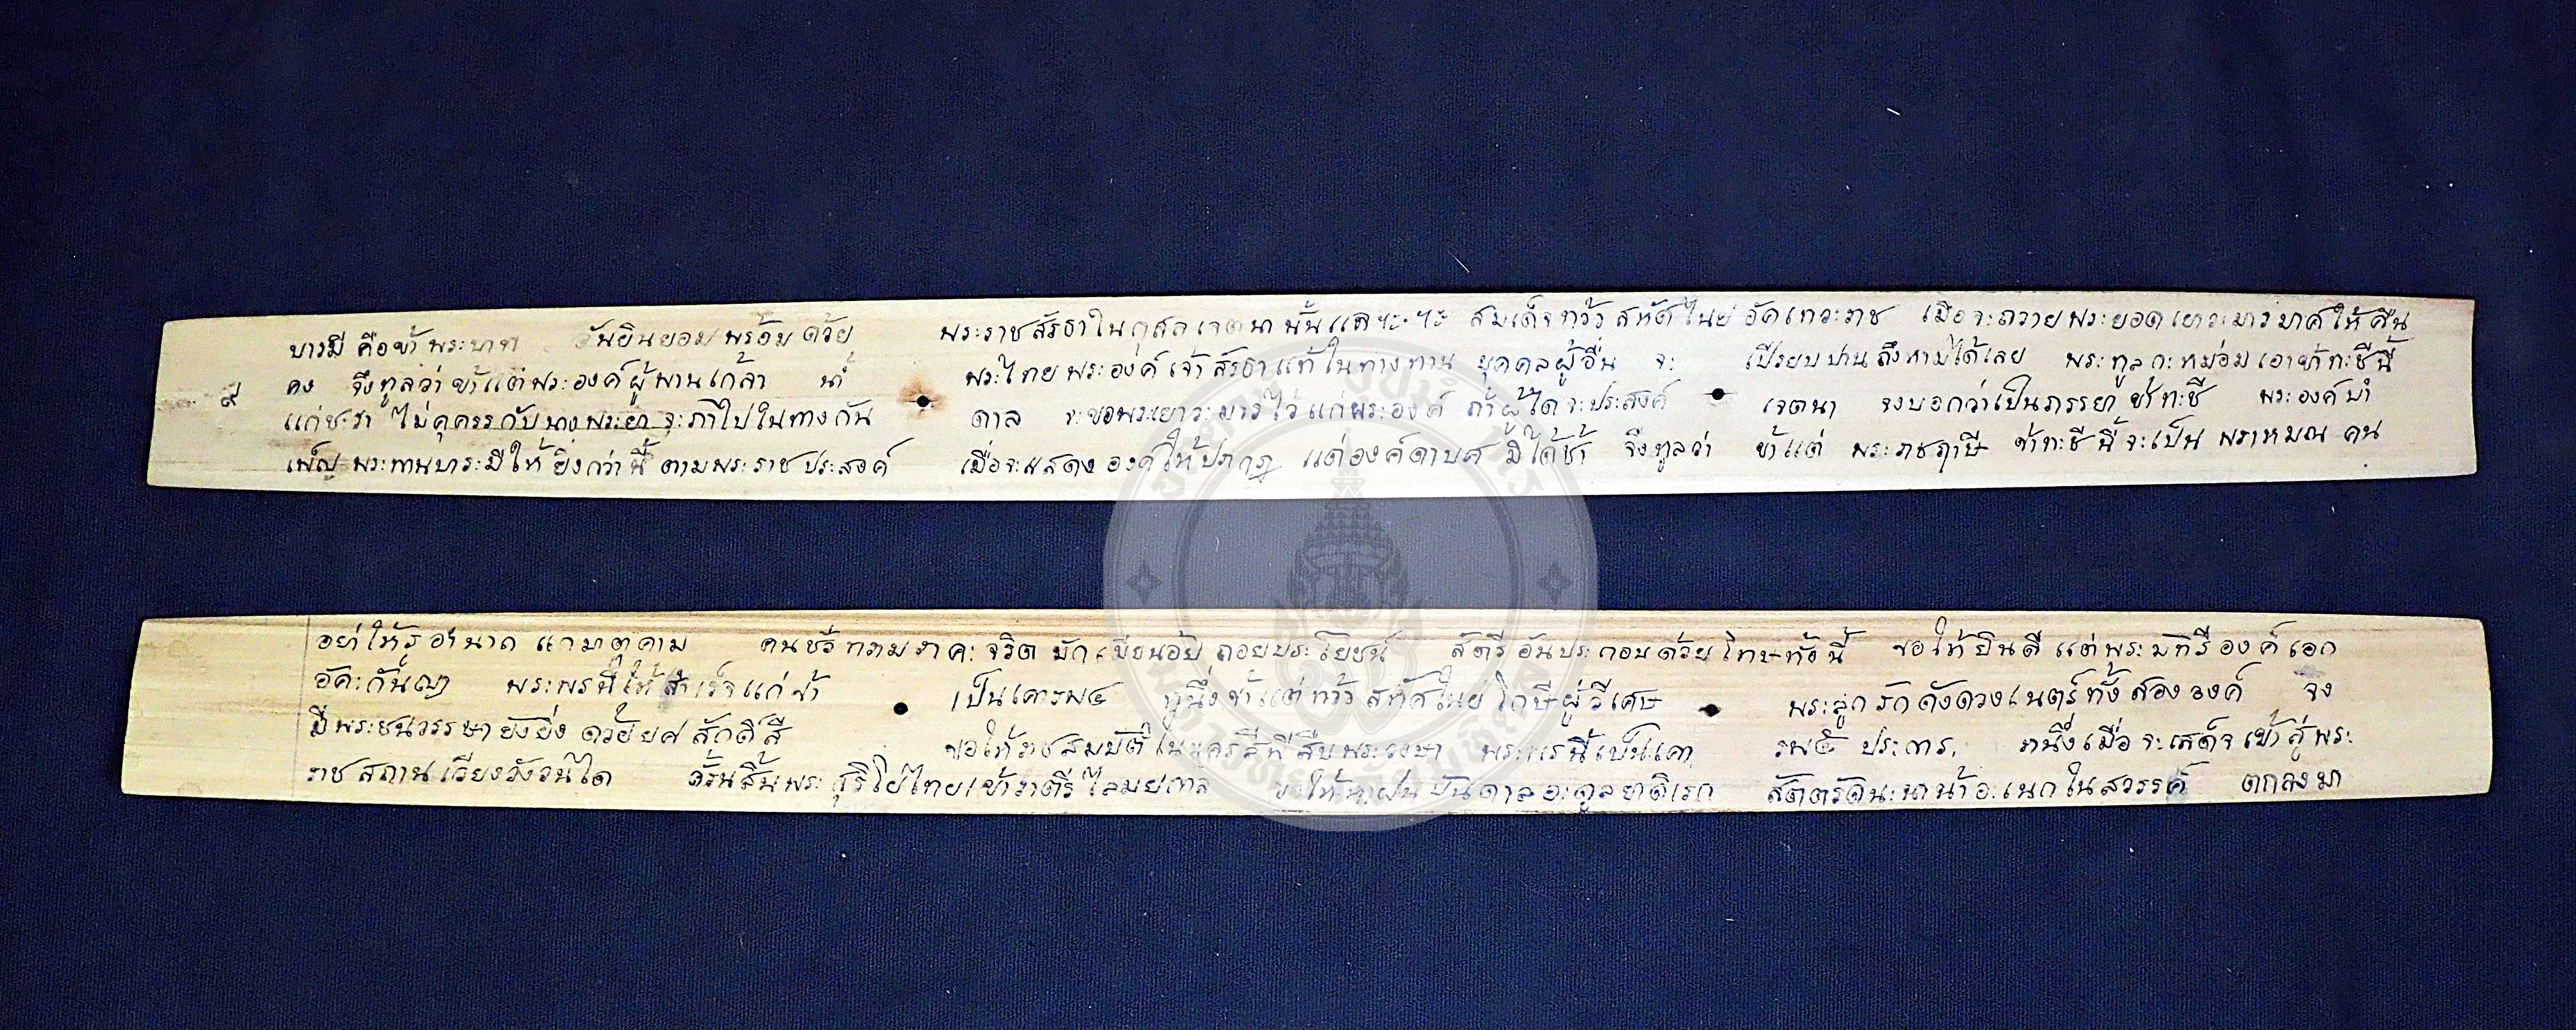 บารมี คือข้าพระบาท อันยินยอมพร้อมด้วย พระราชสัรธาในกุสลเจตนานั้นแล สมเด็จท้าว้สหัสไนย์อัคเทวะราช เมื่อจะถวายพระยอดเยาวะมารมาศให้คืน
๙ คง จึ่งทูลว่าข้าแต่พระองค์ผู้พานเกล้า น้ำ พระไทยพระองค์เจ้าสัรธาแท้ในทางทาน บุคคลผู้อื่น จะ เปรียบปานถึงหามิได้เลย พระทูลกะหม่อมเอาข้าทะชีนี้
แก่ชะรา ไม่คุครรกับนางพระยา จะภาไปในทางกัน ดาล จะขอพระเยาวะมารไว้แก่พระองค์ ถ้าผู้ใดจะประสงค์ เจตนา จงบอกว่าเป็นภรรยา ข้าทะชี พระองค์บำ
เพ็ญพระทานบาระมีให้ยิ่งกว่านี้ ตามพระราชประสงค์ เมื่อจะแสดงองค์ให้ปรากฏ แต่องค์ดาบศมิได้ช้ำ จึ่งทูลว่า ข้าแต่ พระราชฤาษี ข้าทะชีนี้จะเป็น พราหมณคน
อย่าให้รุอำนาถ แกมาตุคาม คนชั่วทรามราคะจริต มัก น้อยถอยประโยชน์ สัตรีอันประกอบด้วยโทษทั้งนี้ ขอให้ยินดี แต่พระมัทรีองค์เอก
อัคะกันญา พระพรนี้ให้สำเร็จแก่ข้า เป็นเคารพ๔ หนึ่งข้าแต่ท้าว้สหัสไนย์โกษีผู้วิเศษ พระลูกรักดังดวงเนตร์ทั้งสององค์ จง
มีพระชนวรรษายังยิ่ง ด้วยยศสักดิ์สี ขอให้ราชสมบัติในบุครีสีพีสืบพระวงษา พระพรนี้เป็นเคา รพ๕ ประการ, หนึ่งเมื่อจะเสด็จเข้าสู่พระ
ราชสถานเวียงวังวันใด ครั้นสิ้นพระสุริโยไทยเข้าราตรีไสมยกาล ขอให้ห่าฝนบันดาลอะดูลยาดิเรก สัตตรัตนะนาน้าอะเนกในสวรรค์ ตกลงมา